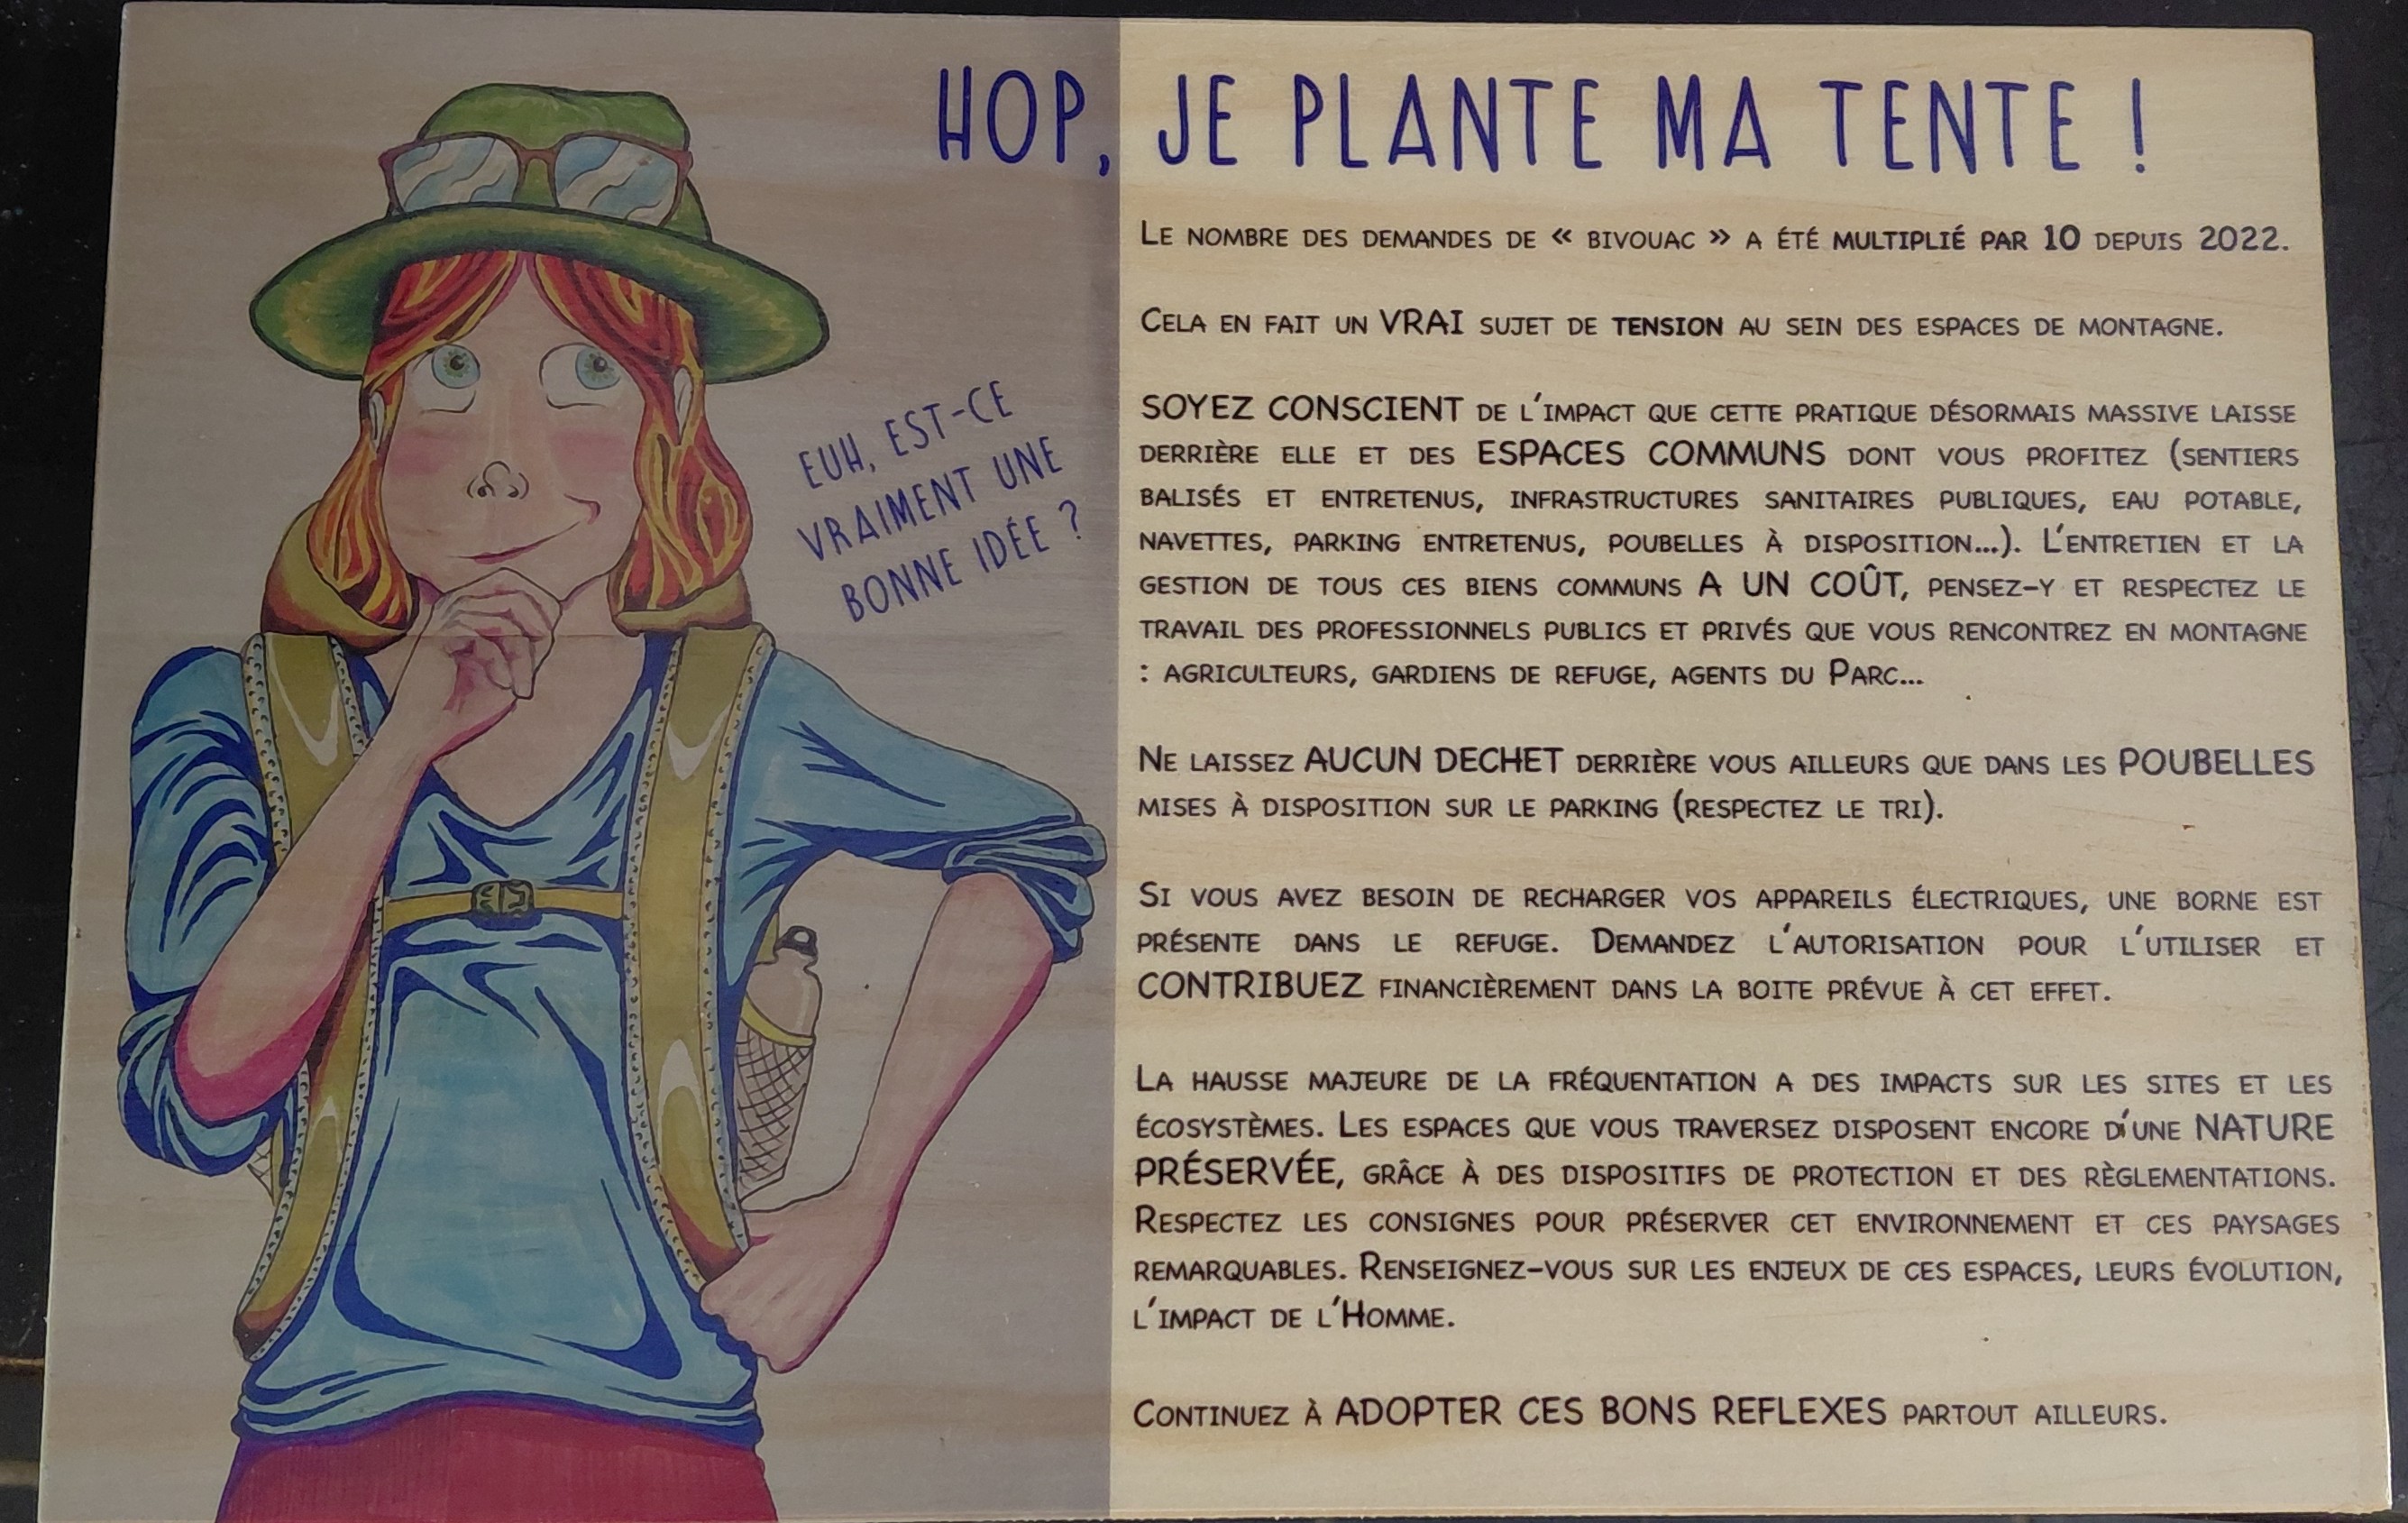 HOP, JE PLANTE MA TENTE !
EUH, EST-CE
VRAIMENT UNE
BONNE IDÉE ?
LE NOMBRE DES DEMANDES DE « BIVOUAC » A ÉTÉ MULTIPLIÉ PAR 10 DEPUIS 2022.
CELA EN FAIT UN VRAI SUJET DE TENSION AU SEIN DES ESPACES DE MONTAGNE.
SOYEZ CONSCIENT DE L'IMPACT QUE CETTE PRATIQUE DÉSORMAIS MASSIVE LAISSE
DERRIÈRE ELLE ET DES ESPACES COMMUNS DONT VOUS PROFITEZ (SENTIERS
BALISÉS ET ENTRETENUS, INFRASTRUCTURES SANITAIRES PUBLIQUES, EAU POTABLE,
NAVETTES, PARKING ENTRETENUS, POUBELLES À DISPOSITION...). L'ENTRETIEN ET LA
GESTION DE TOUS CES BIENS COMMUNS A UN COÛT, PENSEZ-Y ET RESPECTEZ LE
TRAVAIL DES PROFESSIONNELS PUBLICS ET PRIVÉS QUE VOUS RENCONTREZ EN MONTAGNE
: AGRICULTEURS, GARDIENS DE REFUGE, AGENTS DU PARC...
NE LAISSEZ AUCUN DECHET DERRIÈRE VOUS AILLEURS QUE DANS LES POUBELLES
MISES À DISPOSITION SUR LE PARKING (RESPECTEZ LE TRI).
SI VOUS AVEZ BESOIN DE RECHARGER VOS APPAREILS ÉLECTRIQUES, UNE BORNE EST
PRÉSENTE DANS LE REFUGE. DEMANDEZ L'AUTORISATION POUR L'UTILISER ET
CONTRIBUEZ FINANCIÈREMENT DANS LA BOITE PRÉVUE À CET EFFET.
LA HAUSSE MAJEURE DE LA FRÉQUENTATION A DES IMPACTS SUR LES SITES ET LES
ÉCOSYSTÈMES. LES ESPACES QUE VOUS TRAVERSEZ DISPOSENT ENCORE D'UNE NATURE
PRÉSERVÉE, GRÂCE À DES DISPOSITIFS DE PROTECTION ET DES RÈGLEMENTATIONS.
RESPECTEZ LES CONSIGNES POUR PRÉSERVER CET ENVIRONNEMENT ET CES PAYSAGES
REMARQUABLES. RENSEIGNEZ-VOUS SUR LES ENJEUX DE CES ESPACES, LEURS ÉVOLUTION,
L'IMPACT DE L'HOMME.
CONTINUEZ À ADOPTER CES BONS REFLEXES PARTOUT AILLEURS.